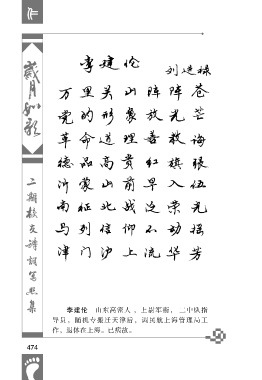 岁月如歌
二期校友诗词写照集
李建伦
刘建禄
万里关山阵阵苍
党的形象放光芒
革命道理善教诲
德品高贵红旗张
沂蒙山前早入伍
南征北战逞荣光
马列信仰不动摇
津门沪上流华芳
李建伦 山东高密人,上尉军衔,二中队指
导员。随机专搬迁天津后,调民航上海管理局工
作。退休在上海。已病故。
474